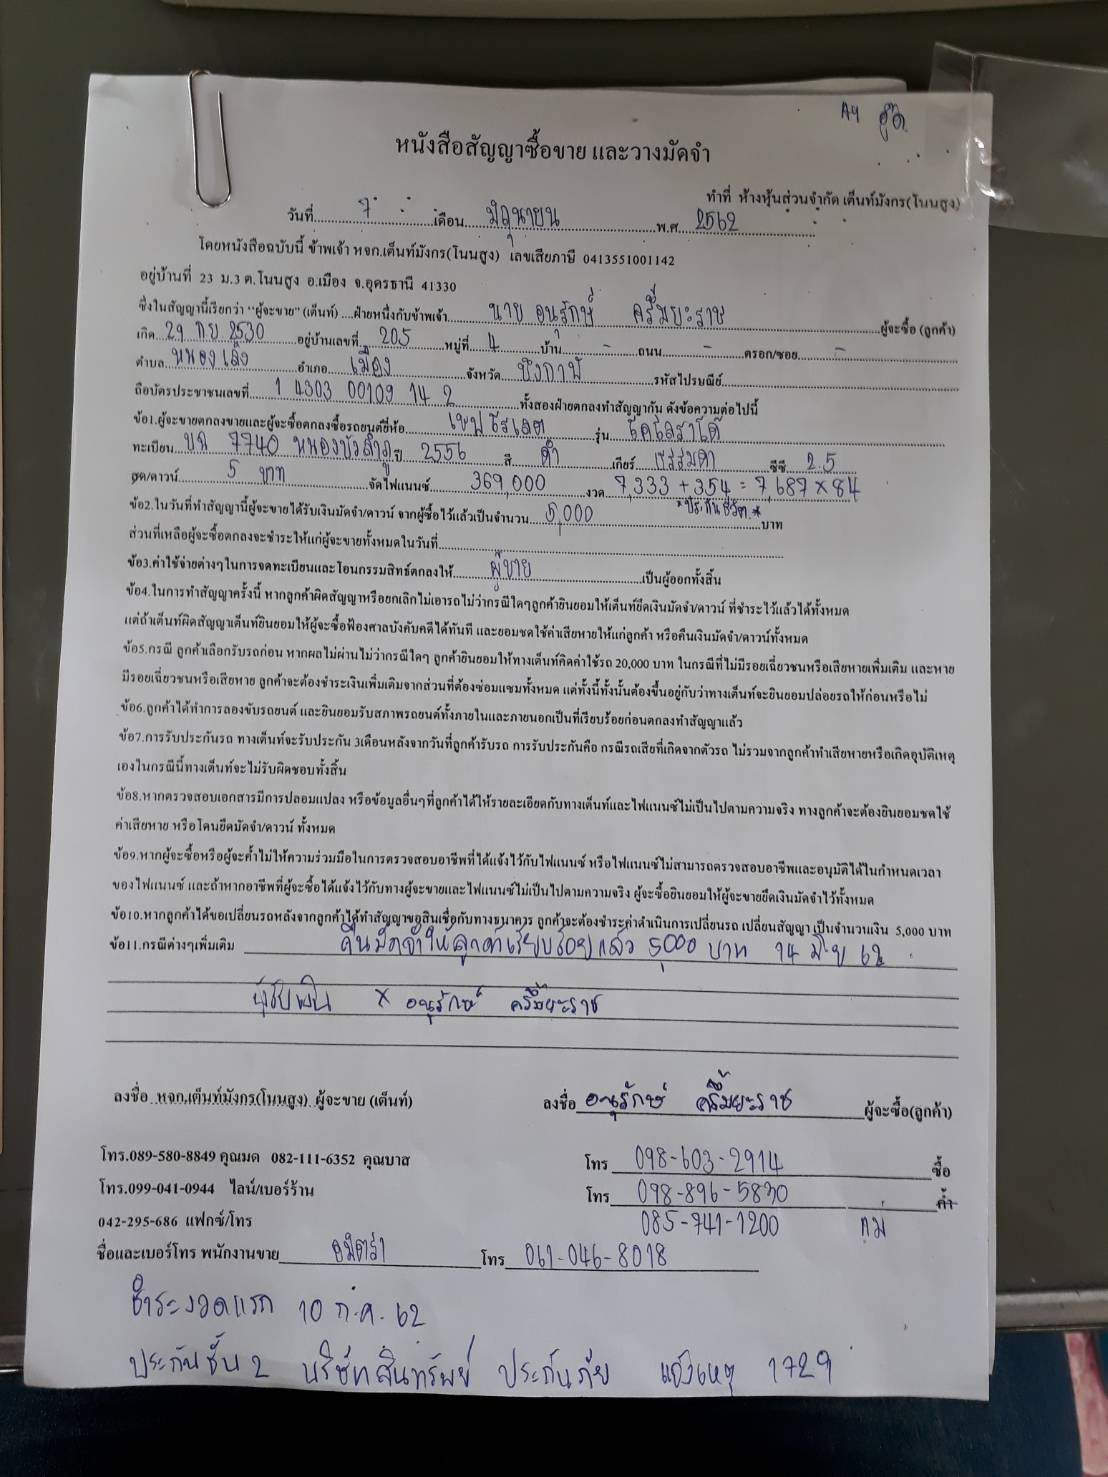 A4
หนังสือสัญญาซื้อขาย และวางมัดจำ
ทำที่ ห้างหุ้นส่วนจำกัด เต็นท์มังกร(โนนสูง)
วันที่ 7 เดือน มิถุนายน พ.ศ. 2562
โดยหนังสือฉบับนี้ ข้าพเจ้า หจก.เต็นท์มังกร(โนนสูง) เลขเสียภาษี 0413551001142
อยู่บ้านที่ 23 ม.3 ต.โนนสูง อ.เมือง จ.อุดรธานี 41330
ซึ่งในสัญญานี้เรียกว่า "ผู้จะขาย" (เต็นท์) ....ฝ่ายหนึ่งกับข้าพเจ้า นาย อนุรักษ์ ครื้มยะราช ผู้จะซื้อ (ลูกค้า)
เกิด 29 กย 2530 อยู่บ้านเลขที่ 205 หมู่ที่ 4 บ้าน - ถนน - ตรอก/ซอย -
ตำบล หนองเลิง อำเภอ เมือง จังหวัด บึงกาฬ รหัสไปรษณีย์
ถือบัตรประชาชนเลขที่ 1 4303 00109 14 2 ทั้งสองฝ่ายตกลงทำสัญญากัน ดังข้อความต่อไปนี้
ข้อ1.ผู้จะขายตกลงขายและผู้จะซื้อตกลงซื้อรถยนต์ยี่ห้อ เชฟโรเลต รุ่น โคโลราโด้
ทะเบียน บก 7740 หนองบัวลำภู ปี 2556 สี ดำ เกียร์ ธรรมดา ซีซี 2.5
ชุด/ดาวน์ 5 บาท จัดไฟแนนซ์ 369,000 งวด 7,333 + 354 = 7,687 x 84
*ประกันชีวิต*
ข้อ2.ในวันที่ทำสัญญานี้ผู้จะขายได้รับเงินมัดจำ/ดาวน์ จากผู้ซื้อไว้แล้วเป็นจำนวน 5,000 บาท
ส่วนที่เหลือผู้จะซื้อตกลงจะชำระให้แก่ผู้จะขายทั้งหมดในวันที่
ข้อ3.ค่าใช้จ่ายต่างๆในการจดทะเบียนและโอนกรรมสิทธ์ตกลงให้ ผู้ขาย เป็นผู้ออกทั้งสิ้น
ข้อ4.ในการทำสัญญาครั้งนี้ หากลูกค้าผิดสัญญาหรือยกเลิกไม่เอารถไม่ว่ากรณีใดๆลูกค้ายินยอมให้เต็นท์ยึดเงินมัดจำ/ดาวน์ ที่ชำระไว้แล้วได้ทั้งหมด
แต่ถ้าเต็นท์ผิดสัญญาเต็นท์ยินยอมให้ผู้จะซื้อฟ้องศาลบังคับคดีได้ทันที และยอมชดใช้ค่าเสียหายให้แก่ลูกค้า หรือคืนเงินมัดจำ/ดาวน์ทั้งหมด
ข้อ5.กรณี ลูกค้าเลือกรับรถก่อน หากผลไม่ผ่านไม่ว่ากรณีใดๆ ลูกค้ายินยอมให้ทางเต็นท์คิดค่าใช้รถ 20,000 บาท ในกรณีที่ไม่มีรอยเฉี่ยวชนหรือเสียหายเพิ่มเติม และหาย
มีรอยเฉี่ยวชนหรือเสียหาย ลูกค้าจะต้องชำระเงินเพิ่มเติมจากส่วนที่ต้องซ่อมแซมทั้งหมด แต่ทั้งนี้ทั้งนั้นต้องขึ้นอยู่กับว่าทางเต็นท์จะยินยอมปล่อยรถให้ก่อนหรือไม่
ข้อ6.ลูกค้าได้ทำการลองขับรถยนต์ และยินยอมรับสภาพรถยนต์ทั้งภายในและภายนอกเป็นที่เรียบร้อยก่อนตกลงทำสัญญาแล้ว
ข้อ7.การรับประกันรถ ทางเต็นท์จะรับประกัน 3เดือนหลังจากวันที่ลูกค้ารับรถ การรับประกันคือ กรณีรถเสียที่เกิดจากตัวรถ ไม่รวมจากลูกค้าทำเสียหายหรือเกิดอุบัติเหตุ
เองในกรณีนี้ทางเต็นท์จะไม่รับผิดชอบทั้งสิ้น
ข้อ8.หากตรวจสอบเอกสารมีการปลอมแปลง หรือข้อมูลอื่นๆที่ลูกค้าได้ให้รายละเอียดกับทางเต็นท์และไฟแนนซ์ไม่เป็นไปตามความจริง ทางลูกค้าจะต้องยินยอมชดใช้
ค่าเสียหาย หรือโดนยึดมัดจำ/ดาวน์ ทั้งหมด
ข้อ9.หากผู้จะซื้อหรือผู้จะค้ำไม่ให้ความร่วมมือในการตรวจสอบอาชีพที่ได้แจ้งไว้กับไฟแนนซ์ หรือไฟแนนซ์ไม่สามารถตรวจสอบอาชีพและอนุมัติได้ในกำหนดเวลา
ของไฟแนนซ์ และถ้าหากอาชีพที่ผู้จะซื้อได้แจ้งไว้กับทางผู้จะขายและไฟแนนซ์ไม่เป็นไปตามความจริง ผู้จะซื้อยินยอมให้ผู้จะขายยึดเงินมัดจำไว้ทั้งหมด
ข้อ10.หากลูกค้าได้ขอเปลี่ยนรถหลังจากลูกค้าได้ทำสัญญาขอสินเชื่อกับทางธนาคาร ลูกค้าจะต้องชำระค่าดำเนินการเปลี่ยนรถ เปลี่ยนสัญญา เป็นจำนวนเงิน 5,000 บาท
ข้อ11.กรณีต่างๆเพิ่มเติม คืนมัดจำให้ลูกค้าเรียบร้อยแล้ว 5,000 บาท 14 มิย 62
ผู้รับเงิน x อนุรักษ์ ครื้มยะราช
ลงชื่อ หจก.เต็นท์มังกร(โนนสูง) ผู้จะขาย (เต็นท์) ลงชื่อ อนุรักษ์ ครื้มยะราช ผู้จะซื้อ(ลูกค้า)
โทร.089-580-8849 คุณมด 082-111-6352 คุณบาส โทร 098-603-2914 ซื้อ
โทร.099-041-0944 ไลน์/เบอร์ร้าน โทร 098-896-5830 ค้ำ
042-295-686 แฟกซ์/โทร 085-741-1200 แม่
ชื่อและเบอร์โทร พนักงานขาย โทร 061-046-8018
ชำระงวดแรก 10 ก.ค. 62
ประกันชั้น 2 บริษัทสินทรัพย์ ประกันภัย แจ้งเหตุ 1729